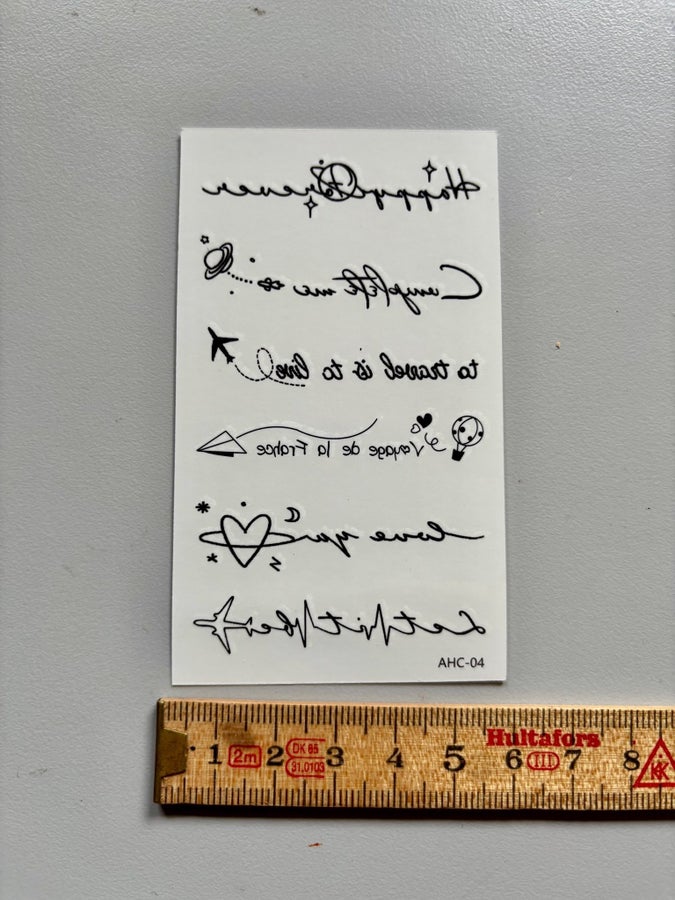 Happy Forever
Complete me
to travel is to live
Voyage de la France
love you
Let it be
AHC-04
Hultafors
1 2m 2 DK 65 3 4 5 6 III 7 8
31.0103